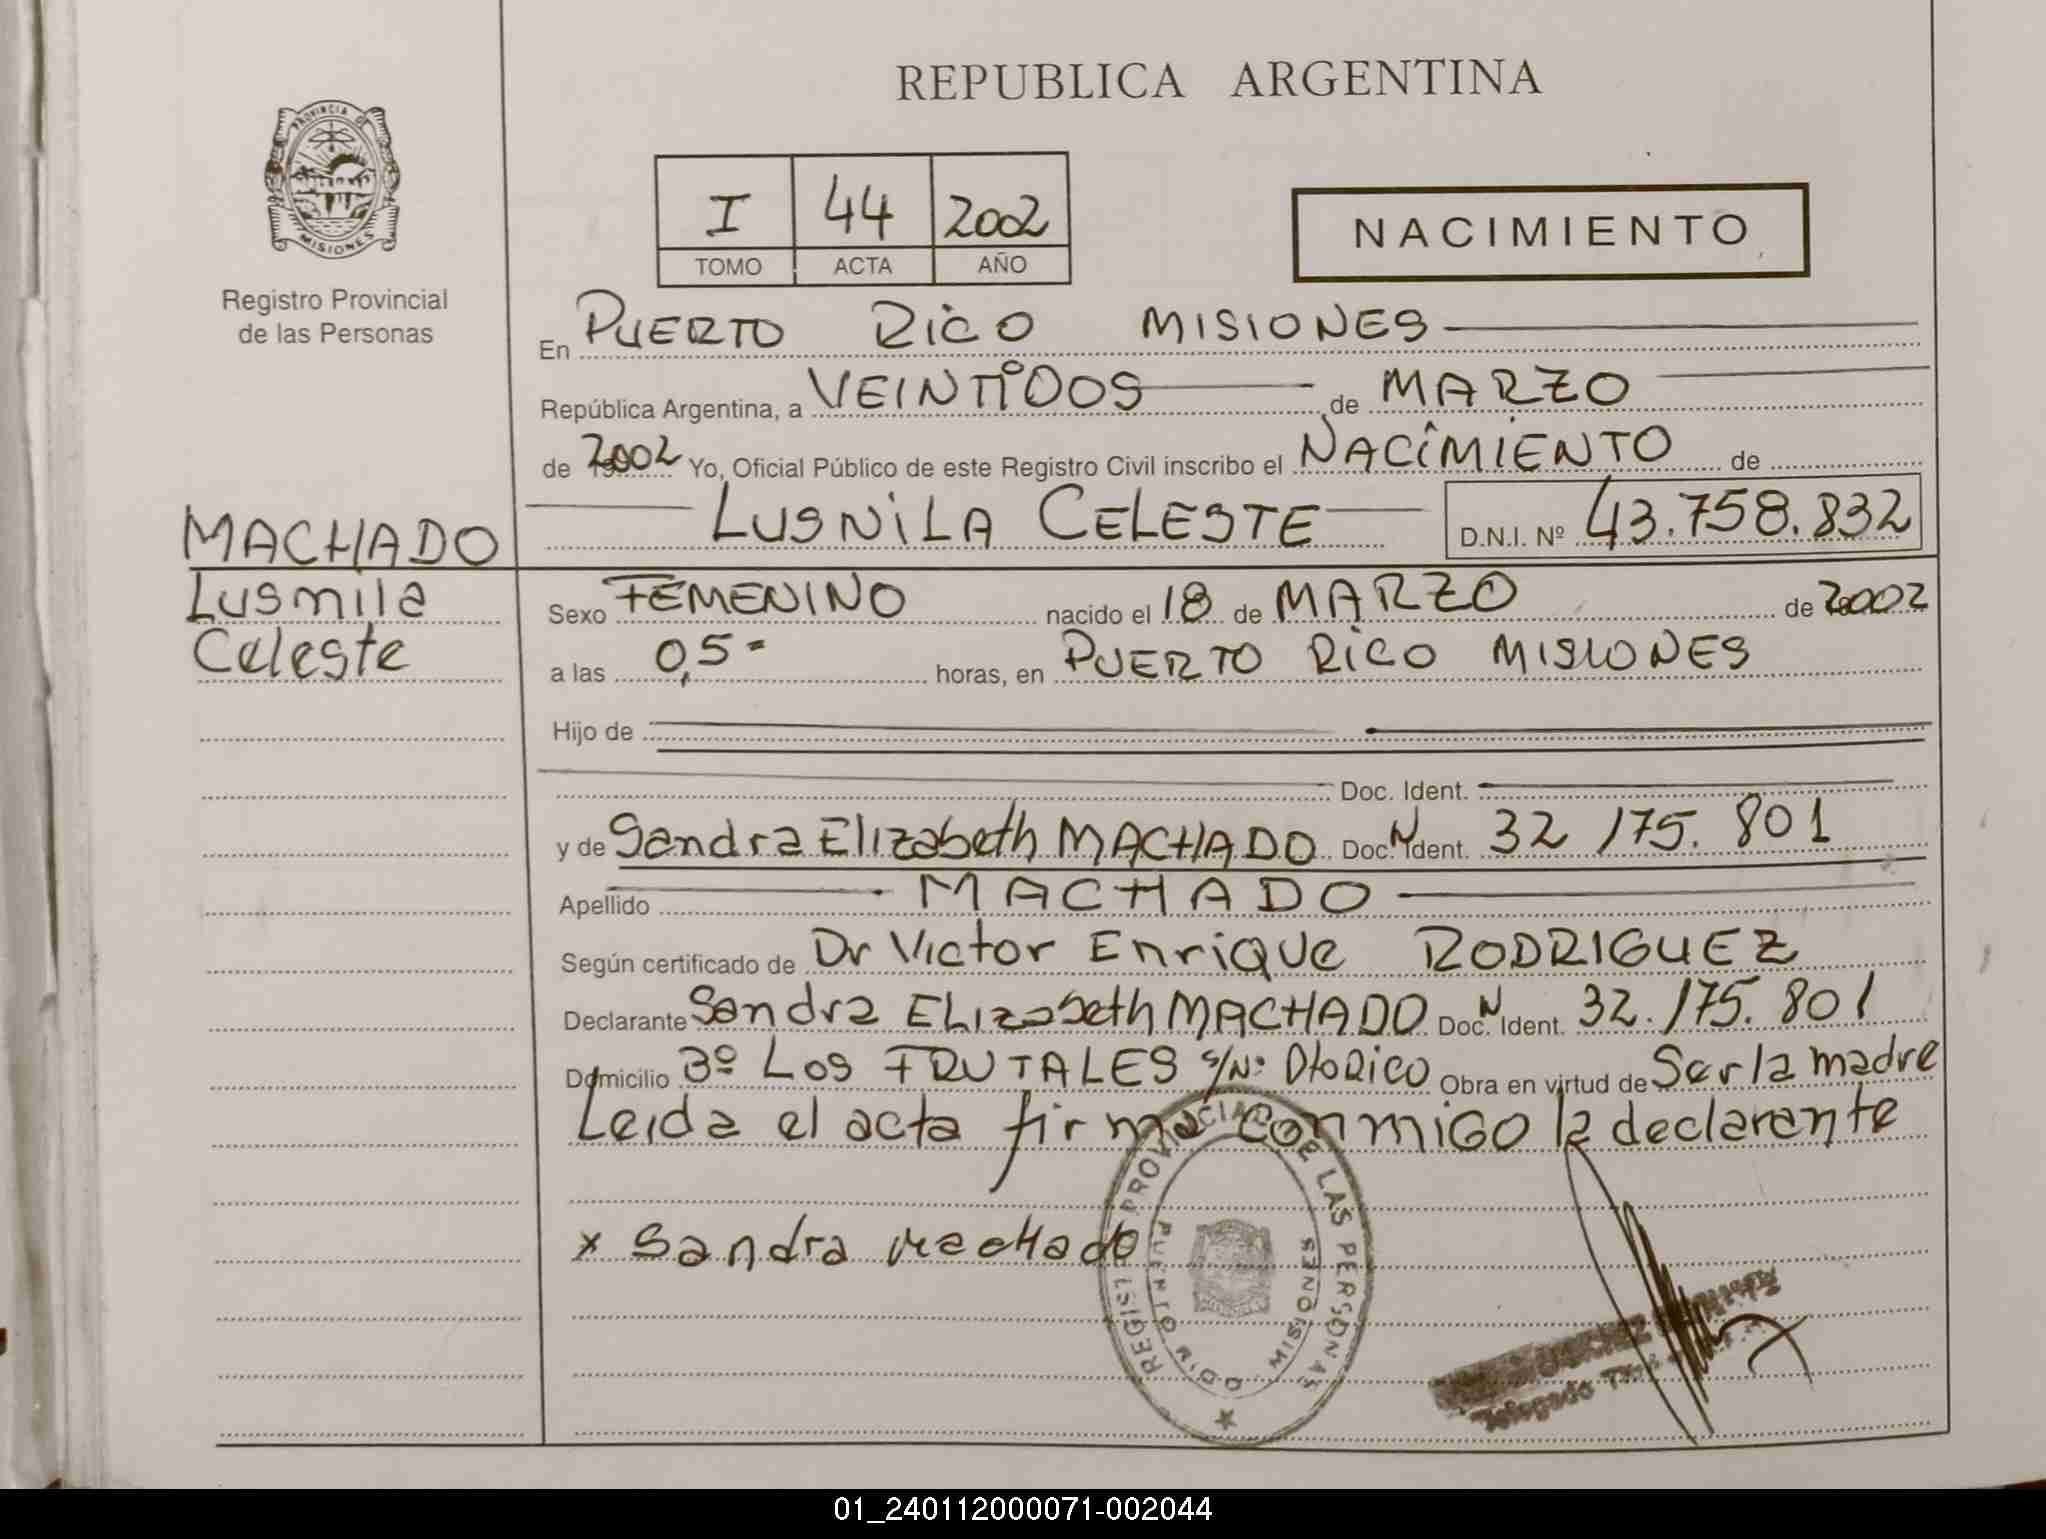 REPUBLICA ARGENTINA
PROVINCIA DE
MISIONES
Registro Provincial
de las Personas
I 44 2002
TOMO ACTA AÑO
NACIMIENTO
En PUERTO RICO MISIONES
República Argentina, a VEINTIDOS de MARZO
de 2002 Yo, Oficial Público de este Registro Civil inscribo el NACIMIENTO de
LUSNILA CELESTE D.N.I. Nº 43.758.832
MACHADO
Lusmila
Celeste
Sexo FEMENINO nacido el 18 de MARZO de 2002
a las 0,5= horas, en PUERTO RICO MISIONES
Hijo de
Doc. Ident.
y de Sandra Elizabeth MACHADO Doc. N Ident. 32 175. 801
Apellido MACHADO
Según certificado de Dr Victor Enrique RODRIGUEZ
Declarante Sandra Elizabeth MACHADO Doc. N Ident. 32.175.801
Domicilio Bº LOS FRUTALES S/Nº PtoRico Obra en virtud de Ser la madre
Leida el acta firma conmigo la declarante
x Sandra machado
REGIST. PROVINCIAL DE LAS PERSONAS
PUERTO RICO MISIONES
Delegado
01_240112000071-002044